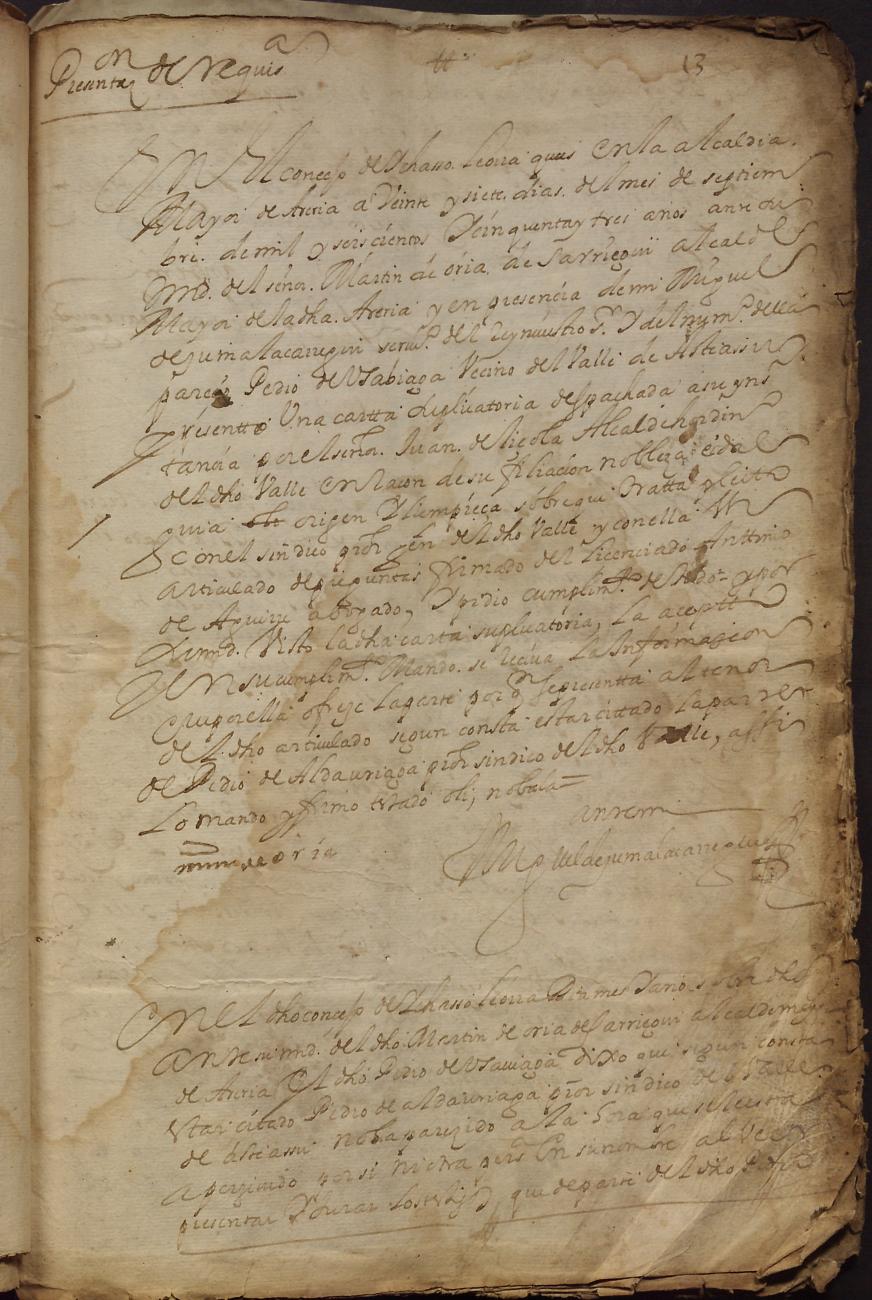 Presenton de requisa
13
En El concejo de Ichasso. Leora ques en la alcaldia.
Mayor de Areria a Veinte y siete dias. del mes de septiem
bre. de mil y seiscientos Y cinquenta y tres años ante su
md. del señor. Martin de oria de Sarriegui alcalde
Mayor de la dha. Areria y en presencia de mi Miguel
de jumalacarregui scrivo. del Rey nuestro sr. Y del numo. della
parezio Pedro de Usabiaga Vecino del Valle de Astiassu
Y presentto Una cartta suplicatoria despachada a su yns
tancia por el señor. Juan. de liçola Alcalde hordin
del dho Valle en raçon de su filiacion nobleza e ydal
guia origen Y limpieça sobre que tratta pleito
con el sindico pror gen del dho Valle y con ella Un
articulado de preguntas firmado del Licenciado Anttonio
de Aguirre abogado, Y pidio cumplimto. de todo y por
su md. Visto la dha carta suplicatoria, La aceptto
Y En su cumplimto. Mando. se reciva La Informazion
que por ella ofreze la parte por qn se presentta al tenor
del dho articulado segun consta estar cittado la parte
de Pedro de Aldauriaga pror sindico del dho Valle, assi
Lo mando y firmo
mrnn de oria
ante mi
Miguel de jumalacarregui
En El dho concejo de Ichasso Leora dia mes Y año sobredhos
ante su md. del dho Martin de oria de Sarriegui alcalde mayor
de Areria El dho Pedro de Usaviaga dixo que segun consta
estar citado Pedro de aldauriaga pror sindico del Valle
de Astiassu no ha parezido a la hora que se le estra
apercivido por si ni otra persa En su nombre al Veer
presentar Y Jurar los testigos, que de parte del dho Pedro